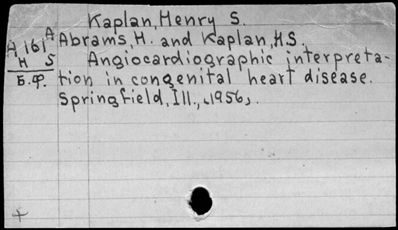 Kaplan, Henry S.
A 161 A
H S
Б.ф.
Abrams, H. and Kaplan, H.S.
Angiocardiographic interpreta-
tion in congenital heart disease.
Springfield, Ill., 1956.
+